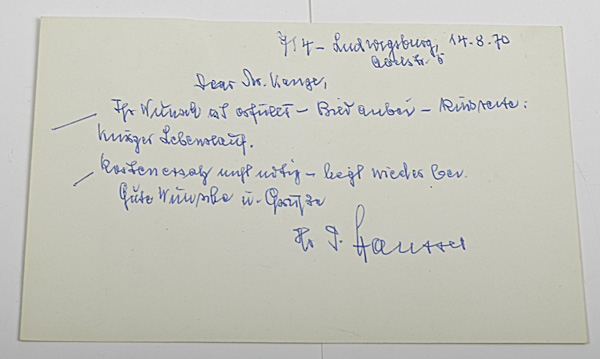 714 - Ludwigsburg, 14.8.70
Dear Mr. Kange,
Ihr Wunsch ist erfüllt – Bild anbei – Rückseite:
Kurzer Lebenslauf.
Kostenersatz nicht nötig – liegt wieder bei.
Gute Wünsche u. Grüße
Ihr P. Hausser